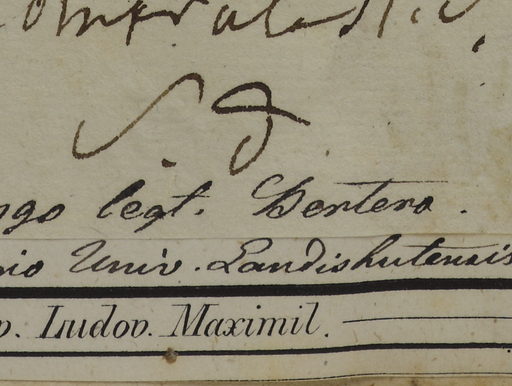 S d
ngo legt. Bertero.
rio Univ. Landishutensis
v. Ludov. Maximil.